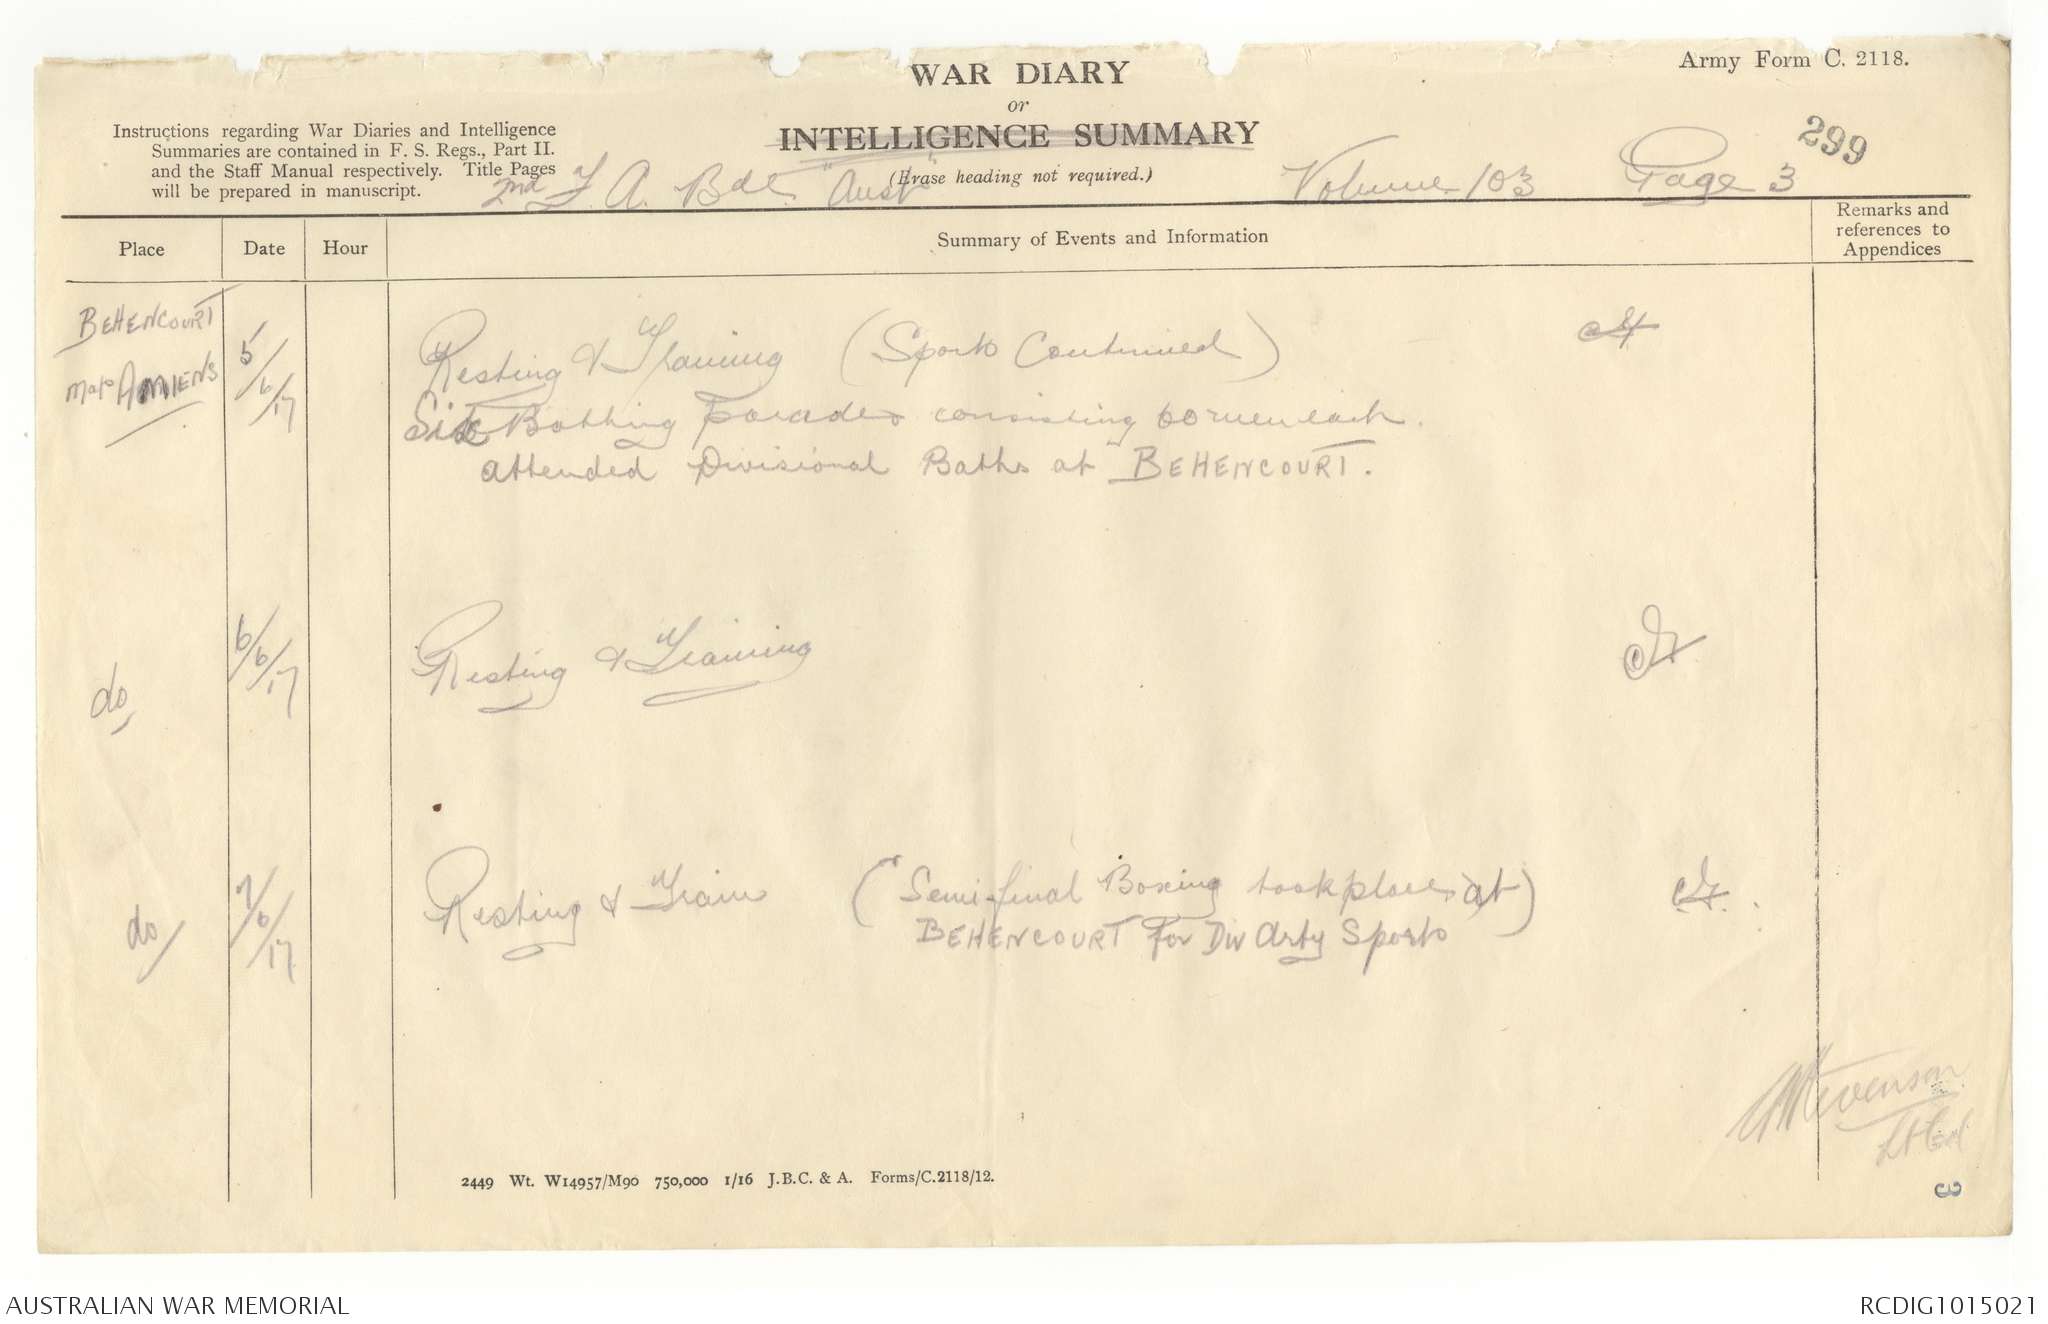 Army Form C. 2118.
WAR DIARY
or
INTELLIGENCE SUMMARY
(Erase heading not required.)
Instructions regarding War Diaries and Intelligence
Summaries are contained in F. S. Regs., Part II.
and the Staff Manual respectively. Title Pages
will be prepared in manuscript.
299
2nd F. A. Bde. "Aust" Volume 103 Page 3
Place Date Hour Summary of Events and Information Remarks and references to Appendices
BEHENCOURT
Map AMIENS
5/6/17
Resting & Training (Sports Continued)
Six Bathing Parades consisting 60 men each.
attended Divisional Baths at BEHENCOURT.
do 6/6/17 Resting & Training
do 7/6/17 Resting & Train (Semi-final Boxing took place at)
BEHENCOURT For Div Arty Sports
Stevenson
Lt Col
3
2449 Wt. W14957/M90 750,000 1/16 J.B.C. & A. Forms/C.2118/12.
AUSTRALIAN WAR MEMORIAL
RCDIG1015021